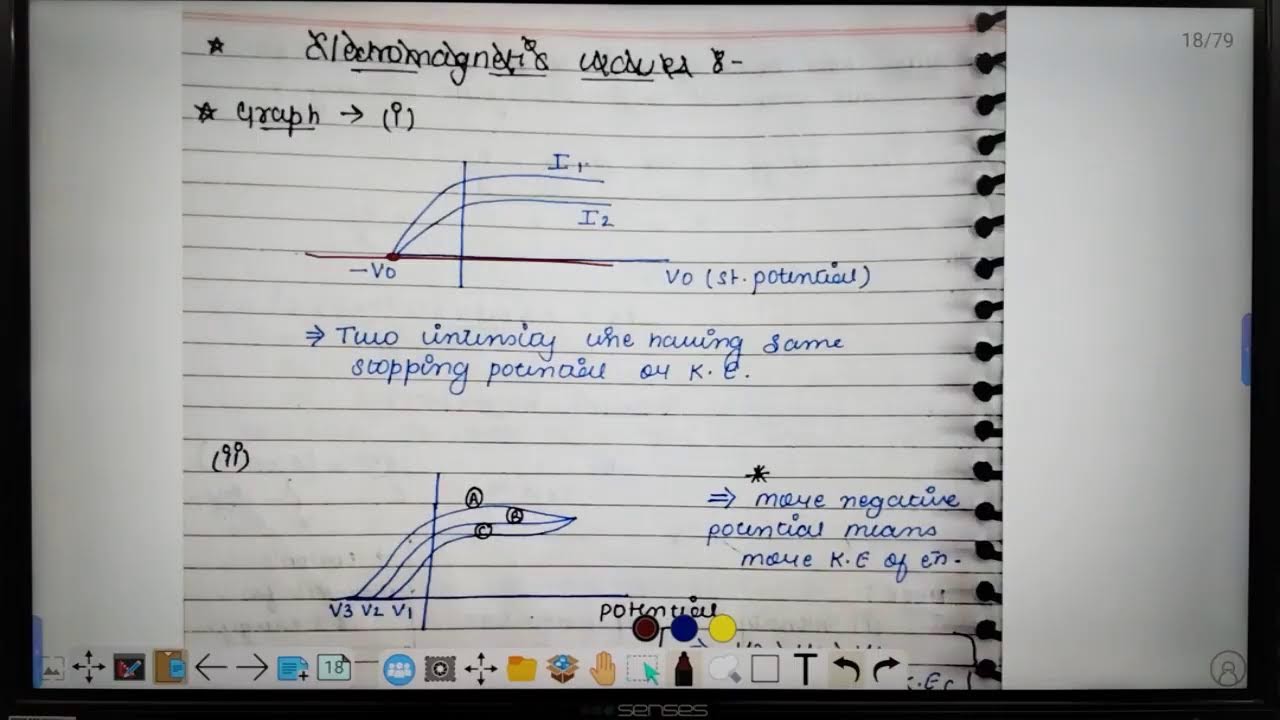 18/79
* Electromagnetic waves :-
* Graph → (i)
I1
I2
-V0
V0 (st. potential)
⇒ Two intensity are having same
stopping potential or K.E.
(ii)
*
A
B
C
⇒ more negative
potential means
more K.E of en.
V3 V2 V1
potential
18
T
senses